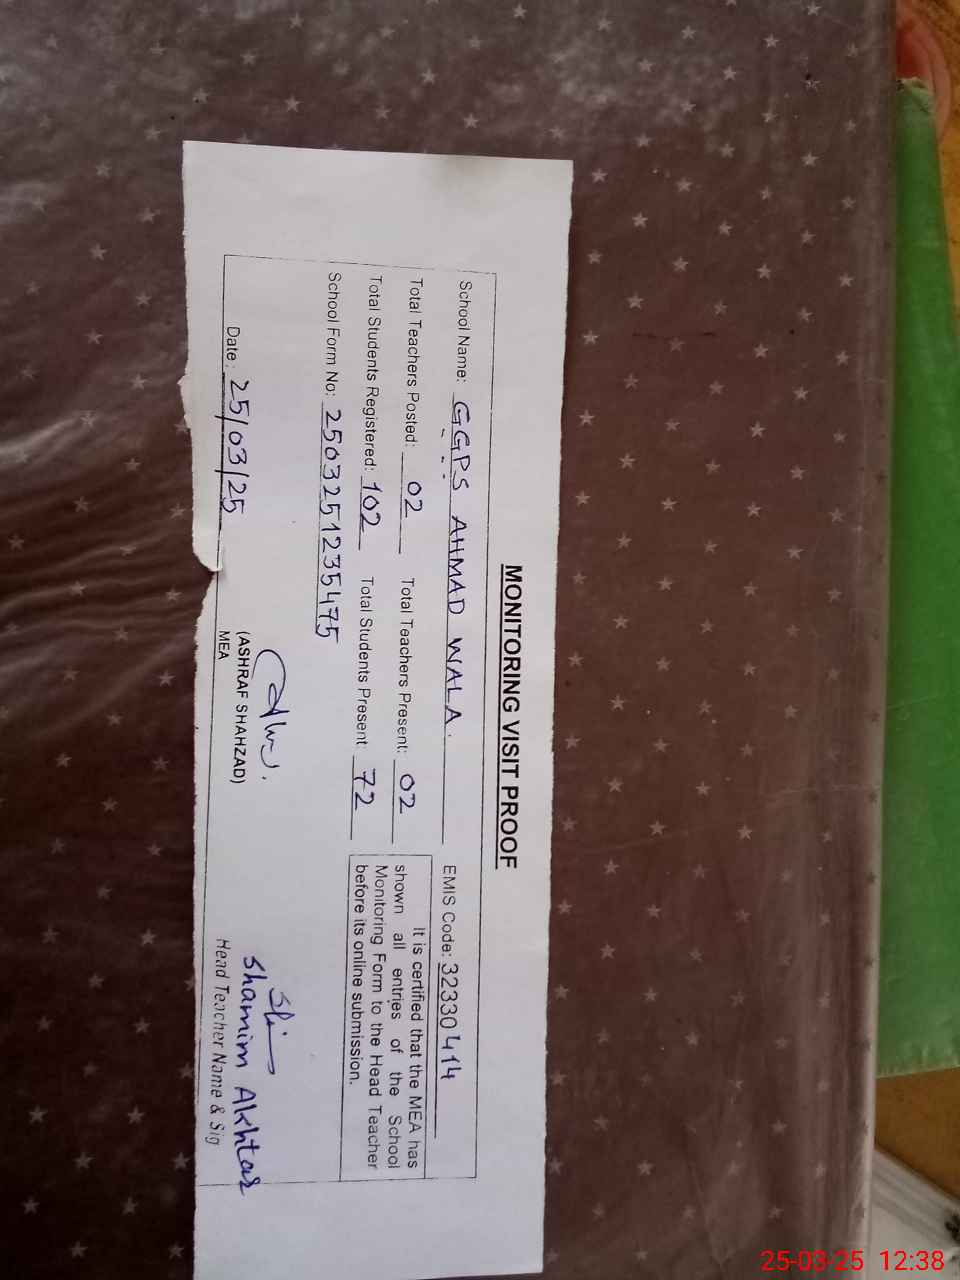 MONITORING VISIT PROOF
School Name: GGPS AHMAD WALA. EMIS Code: 32330414
Total Teachers Posted: 02 Total Teachers Present: 02
Total Students Registered: 102 Total Students Present: 72
School Form No: 2503251235475
It is certified that the MEA has
shown all entries of the School
Monitoring Form to the Head Teacher
before its online submission.
Date: 25/03/25
(ASHRAF SHAHZAD)
MEA
Shamim Akhtar
Head Teacher Name & Sig
25-03-25 12:38